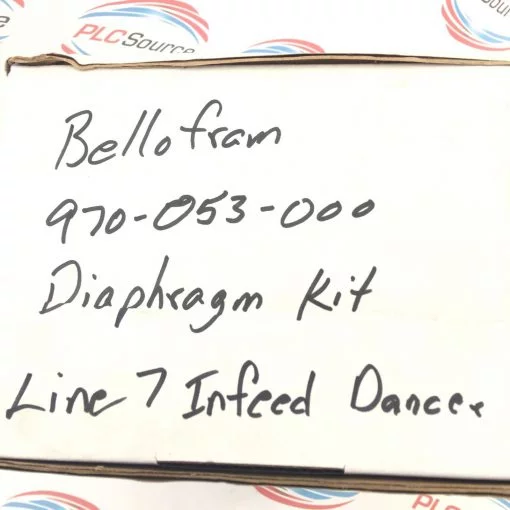 PLCSource
Bellofram
970-053-000
Diaphragm Kit
Line 7 Infeed Dancer
PL